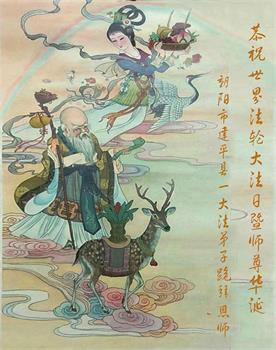 恭祝世界法轮大法日暨师尊华诞
朝阳市建平县一大法弟子跪拜恩师